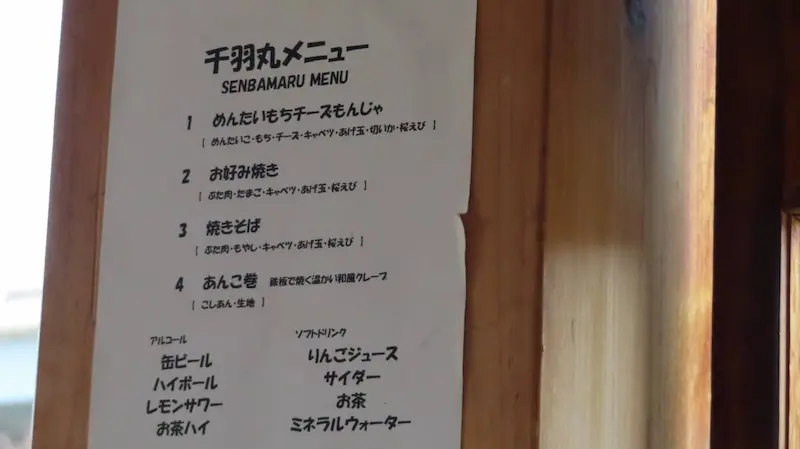 千羽丸メニュー
SENBAMARU MENU
1 めんたいもちチーズもんじゃ
[ めんたいこ・もち・チーズ・キャベツ・あげ玉・切いか・桜えび ]
2 お好み焼き
[ ぶた肉・たまご・キャベツ・あげ玉・桜えび ]
3 焼きそば
[ ぶた肉・もやし・キャベツ・あげ玉・桜えび ]
4 あんこ巻 鉄板で焼く温かい和風クレープ
[ こしあん・生地 ]
アルコール
缶ビール
ハイボール
レモンサワー
お茶ハイ
ソフトドリンク
りんごジュース
サイダー
お茶
ミネラルウォーター